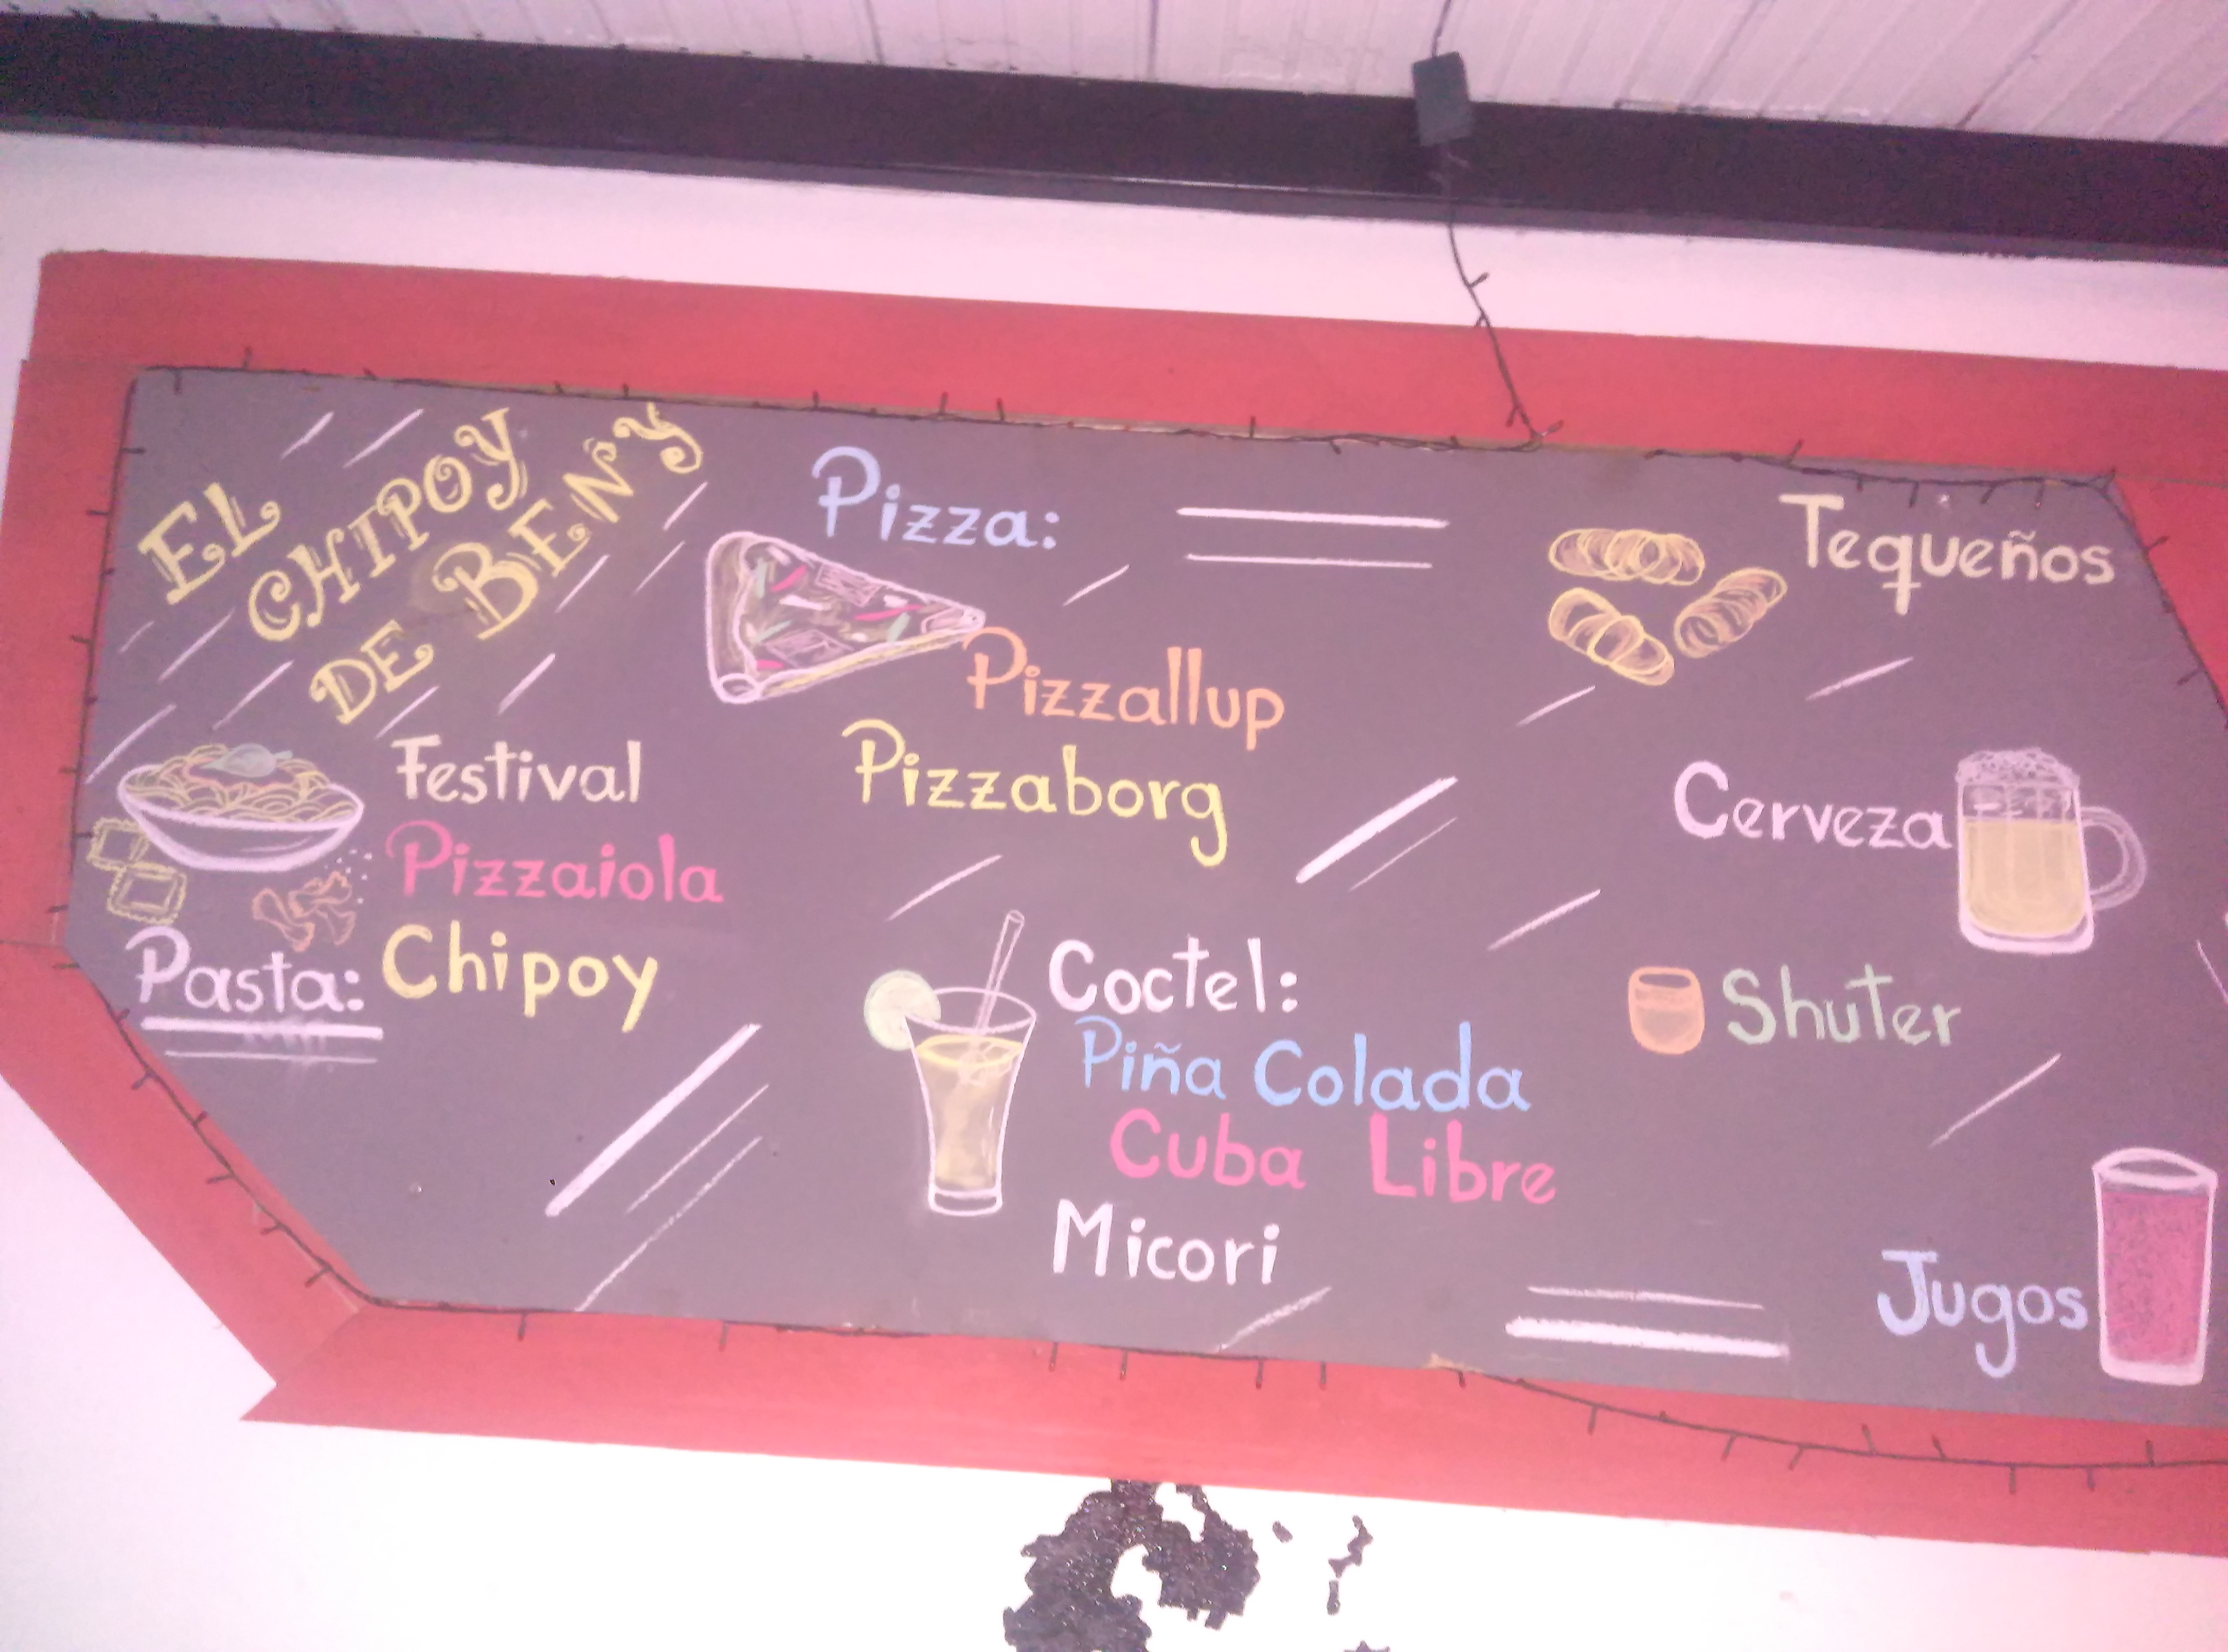 EL
CHIPOY
DE BENY
Festival
Pizzaiola
Pasta: Chipoy
Pizza:
Pizzallup
Pizzaborg
Coctel:
Piña Colada
Cuba Libre
Micori
Tequeños
Cerveza
Shuter
Jugos